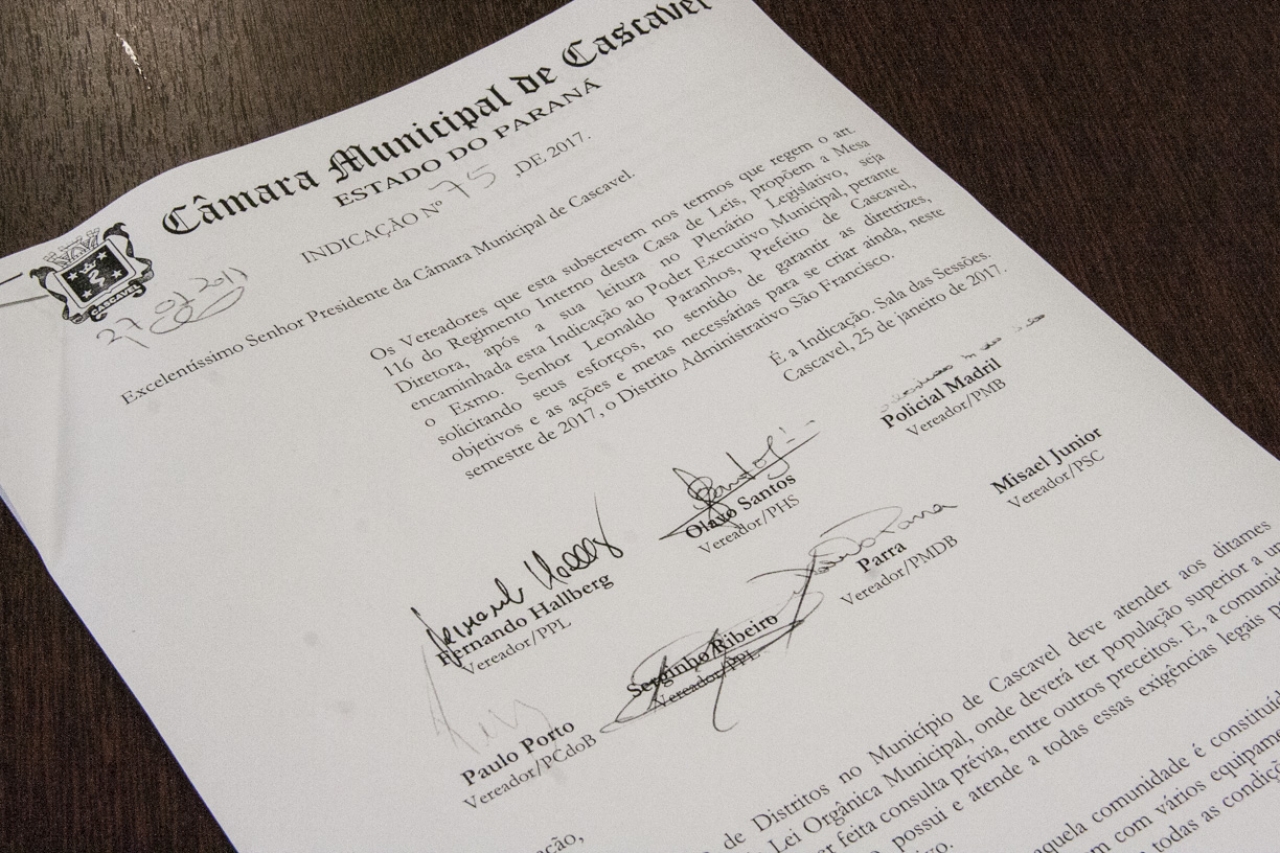 Câmara Municipal de Cascavel
ESTADO DO PARANÁ
INDICAÇÃO Nº 75 ,DE 2017.
CASCAVEL
27 01 2017
Excelentíssimo Senhor Presidente da Câmara Municipal de Cascavel.
Os Vereadores que esta subscrevem nos termos que regem o art.
116 do Regimento Interno desta Casa de Leis, propõem a Mesa
Diretora, após a sua leitura no Plenário Legislativo, seja
encaminhada esta Indicação ao Poder Executivo Municipal, perante
o Exmo. Senhor Leonaldo Paranhos, Prefeito de Cascavel,
solicitando seus esforços, no sentido de garantir as diretrizes,
objetivos e as ações e metas necessárias para se criar ainda, neste
semestre de 2017, o Distrito Administrativo São Francisco.
É a Indicação. Sala das Sessões.
Cascavel, 25 de janeiro de 2017.
Fernando Hallberg
Vereador/PPL
Olavo Santos
Vereador/PHS
Policial Madril
Vereador/PMB
Paulo Porto
Vereador/PCdoB
Serginho Ribeiro
Vereador/PPL
Parra
Vereador/PMDB
Misael Junior
Vereador/PSC
de Distritos no Município de Cascavel deve atender aos ditames
Lei Orgânica Municipal, onde deverá ter população superior a
feita consulta prévia, entre outros preceitos. E, a
possui e atende a todas essas exigências legais
comunidade é constituíd
com vários
todas as